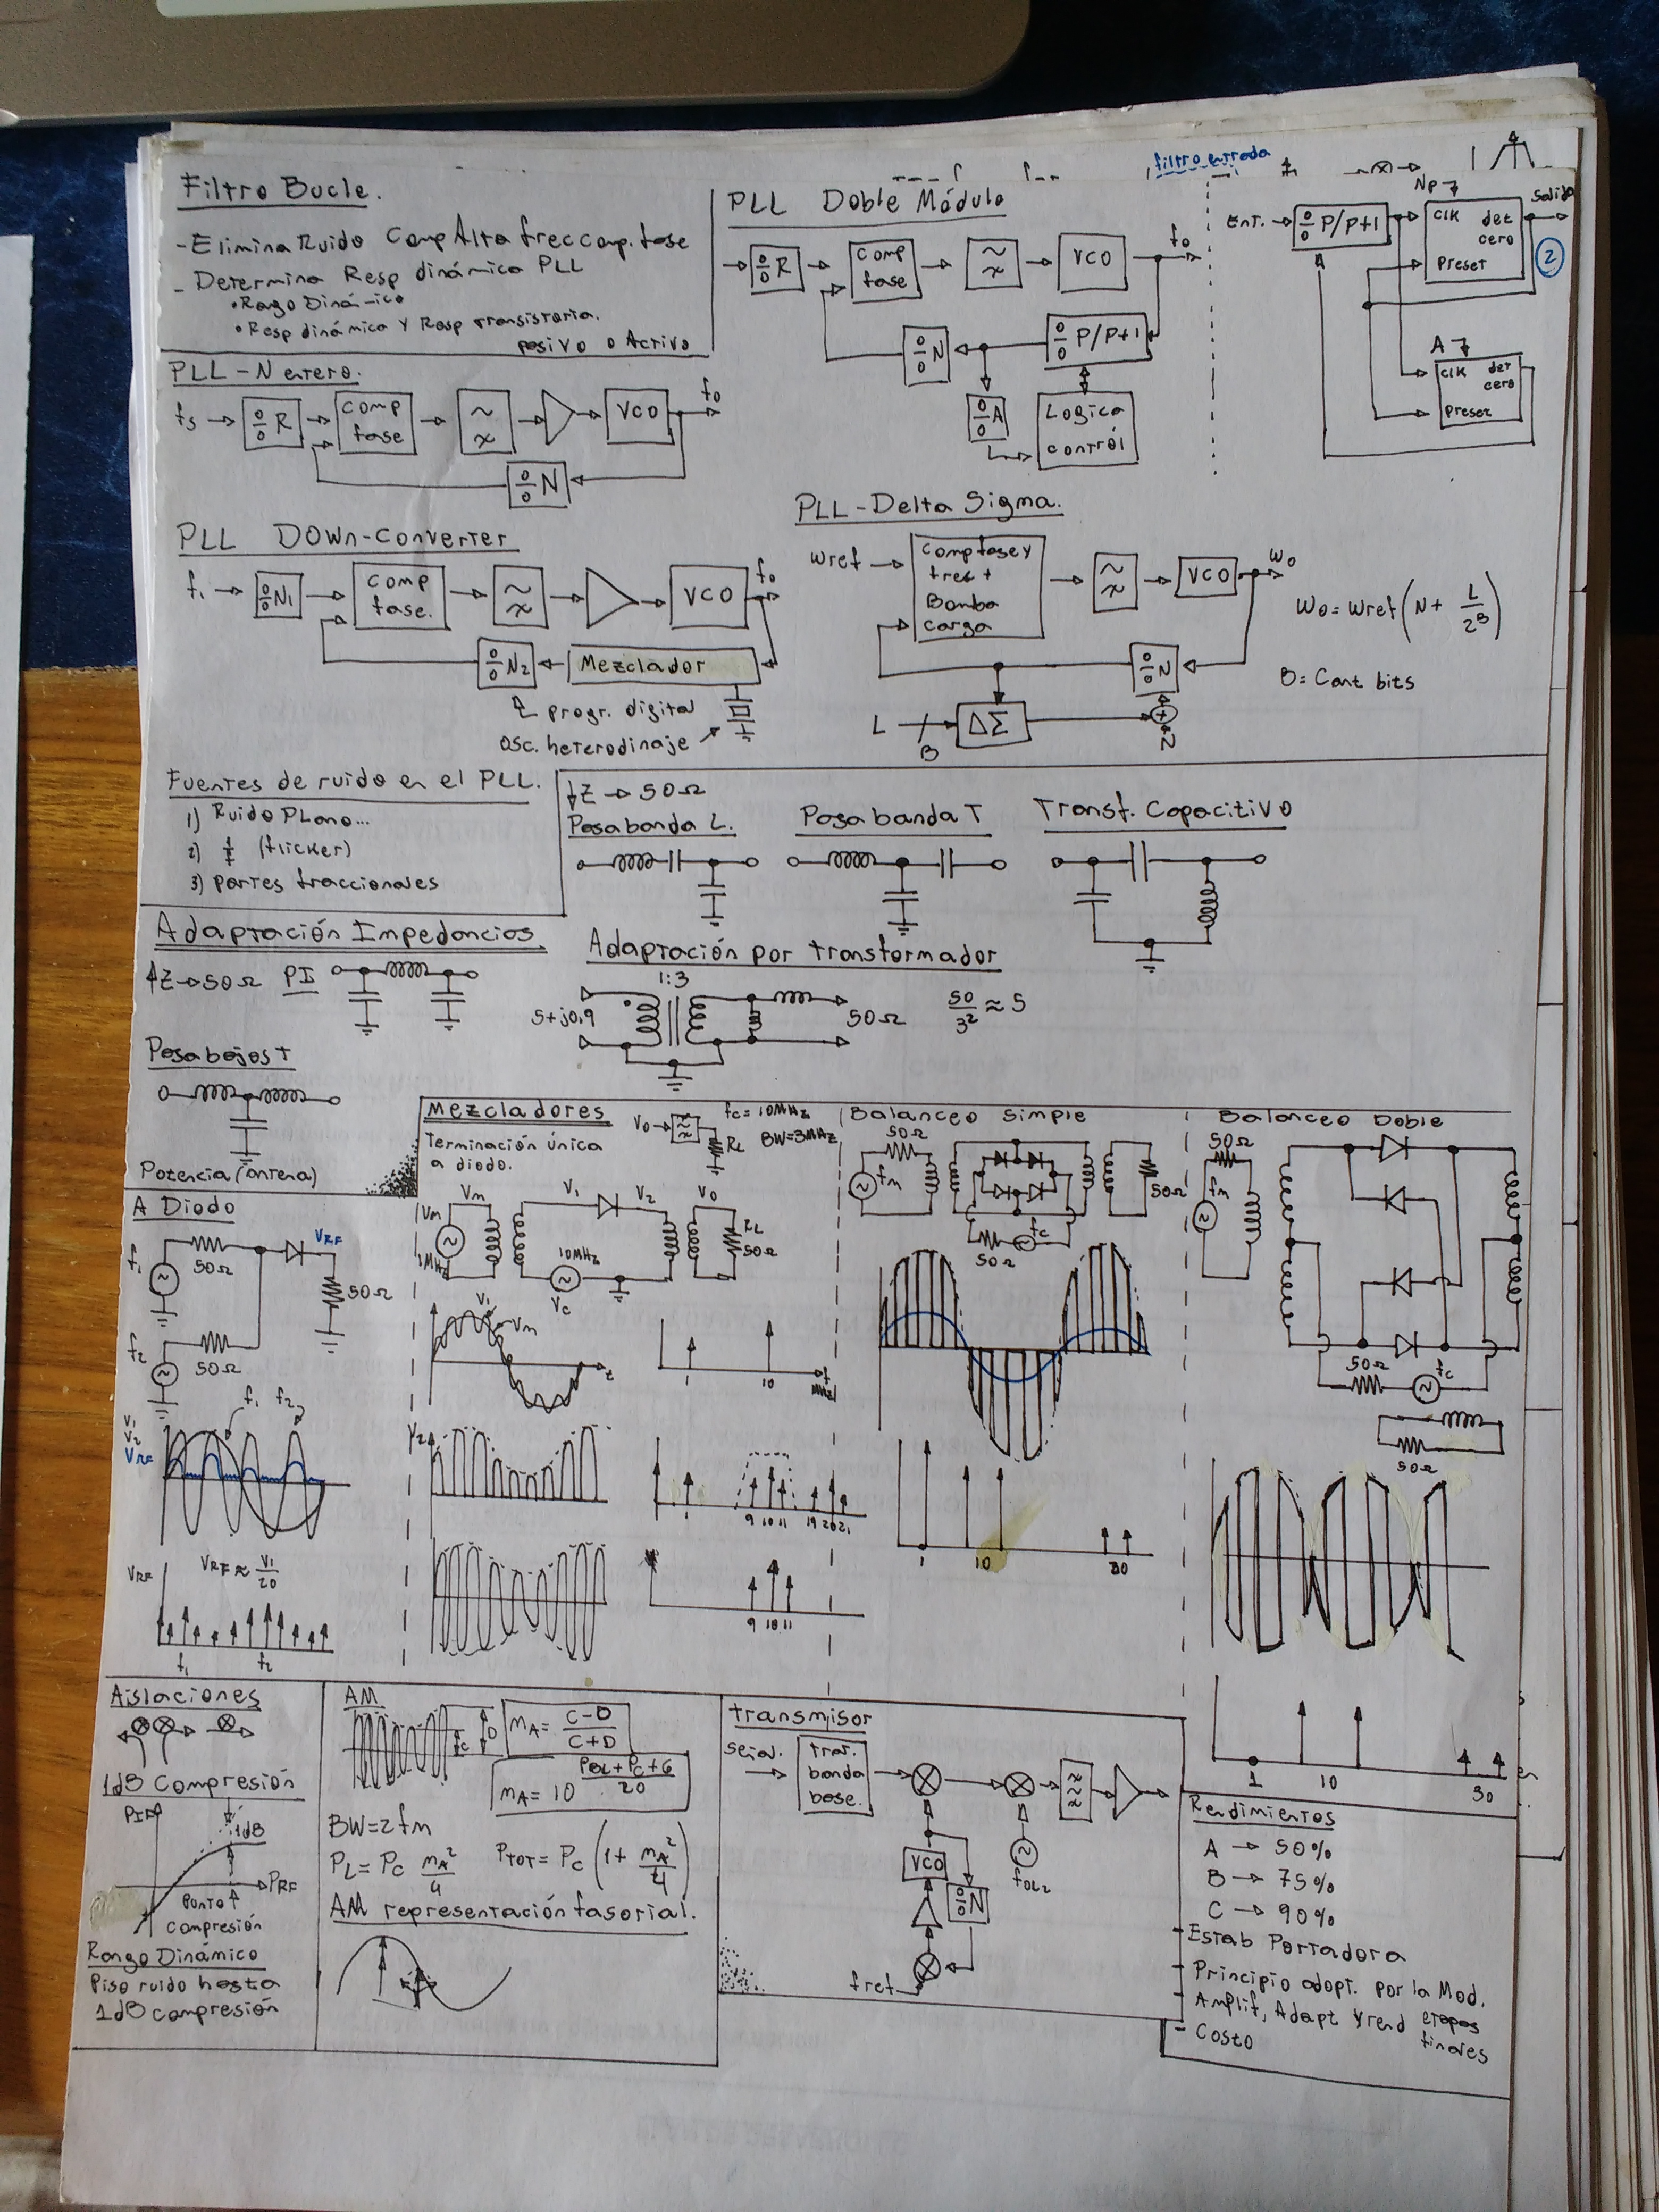 filtro entrada
Filtro Bucle.
- Elimina Ruido Comp Alta frec comp. fase
- Determina Resp dinámica PLL
• Rango Dinámico
• Resp dinámica y Resp Transistoria.
pasivo o Activo
PLL Doble Módulo
÷R
Comp
fase
VCO
fo
÷N
÷ P/P+1
÷A
Logica
contról
Ent.
÷ P/P+1
Np
CLK det
cero
Preset
Salida
2
A
CLK det
cero
Preset
PLL - N entero.
fs
÷R
Comp
fase
VCO
fo
÷N
PLL DOWN-Converter
f1
÷N1
Comp
fase.
VCO
fo
÷N2
Mezclador
progr. digital
Osc. heterodinaje
PLL-Delta Sigma.
Wref
Comp fase y
frec +
Bomba
carga
VCO
Wo
Wo = Wref (N + L/2^B)
÷N
B = Cant bits
L
B
ΔΣ
+
N
Fuentes de ruido en el PLL.
1) Ruido Plano...
2) 1/f (flicker)
3) partes fraccionales
↓Z → 50Ω
Pasabanda L.
Pasabanda T
Transf. Capacitivo
Adaptación Impedancias.
↑Z → 50Ω PI
Adaptación por transformador
1:3
5+j0,9
50Ω
50/3² ≈ 5
Pasabajos T
Potencia (antena)
Mezcladores
Terminación única
a diodo.
Vo
RL
fc = 10MHz
BW = 3MHz
Vm
Vm
1MHz
V1
V2
Vo
10MHz
Vc
RL
50Ω
V1
Vm
t
1
10
f
MHz
V2
1
9 10 11
19 20 21
9 10 11
Balanceo Simple
50Ω
fm
50Ω
fc
50Ω
1
10
30
Balanceo Doble
50Ω
fm
50Ω
fc
50Ω
1
10
30
A Diodo
VRF
f1
50Ω
50Ω
f2
50Ω
f1 f2
V1
V2
VRF
VRF
VRF ≈ V1/20
f1
f2
Aislaciones
1dB Compresión
PI
1dB
PRF
Punto
compresión
Rango Dinámico
Piso ruido hasta
1dB compresión
AM
C
D
mA = (C-D)/(C+D)
mA = 10^((PBL+PC+6)/20)
BW = 2fm
PL = PC mA²/4
PTOT = PC (1 + mA²/4)
AM representación fasorial.
transmisor
señal.
Trat.
banda
base.
VCO
÷N
fOL2
fref
Rendimientos
A → 50%
B → 75%
C → 90%
- Estab Portadora
- Principio adopt. por la Mod.
- Amplif, Adapt y rend etapas
finales
- Costo